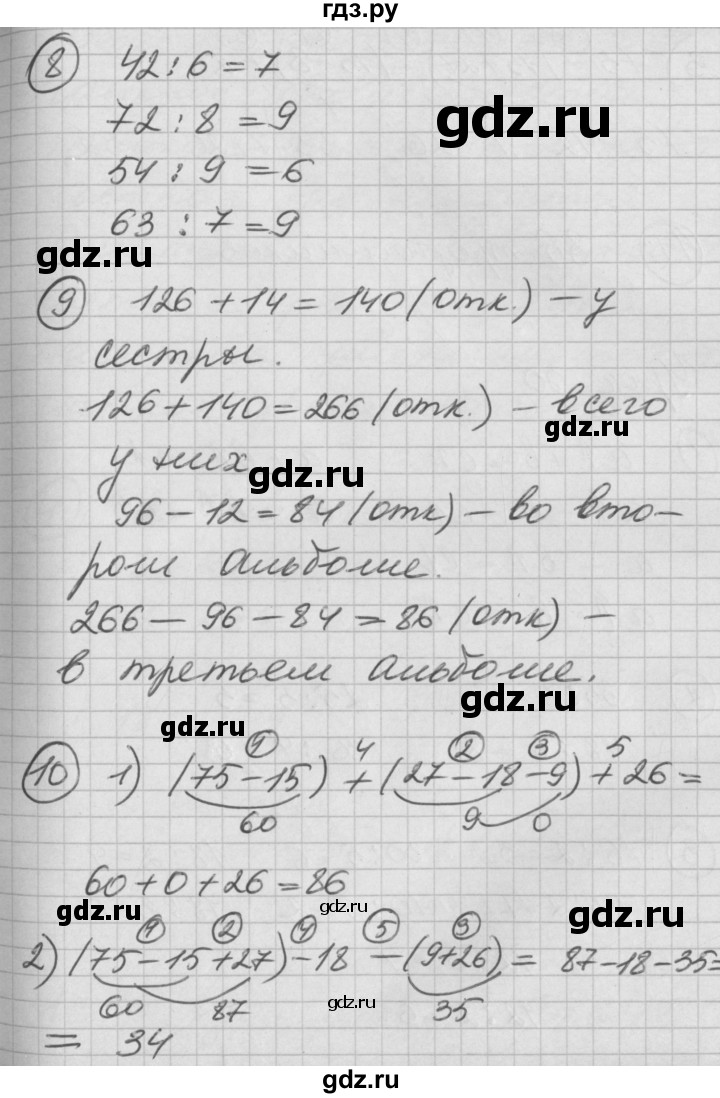 гдз.ру
8 42 : 6 = 7
72 : 8 = 9
gdz.ru
54 : 9 = 6
63 : 7 = 9
gdz.ru
9 126 + 14 = 140 (отк.) – у
сестры.
126 + 140 = 266 (отк.) – всего
gdz.ru
у них
gdz.ru
96 – 12 = 84 (отк) – во вто-
ром альбоме.
266 – 96 – 84 = 86 (отк) –
в третьем альбоме.
gdz.ru
gdz.ru
1 4 2 3 5
10 1) (75 – 15) + (27 – 18 – 9) + 26 =
60 9 0
60 + 0 + 26 = 86
gdz.ru
gdz.ru
1 2 4 5 3
2) (75 – 15 + 27) – 18 – (9 + 26) = 87 – 18 – 35 =
60 87 35
= 34
gdz.ru
gdz.ru
gdz.ru